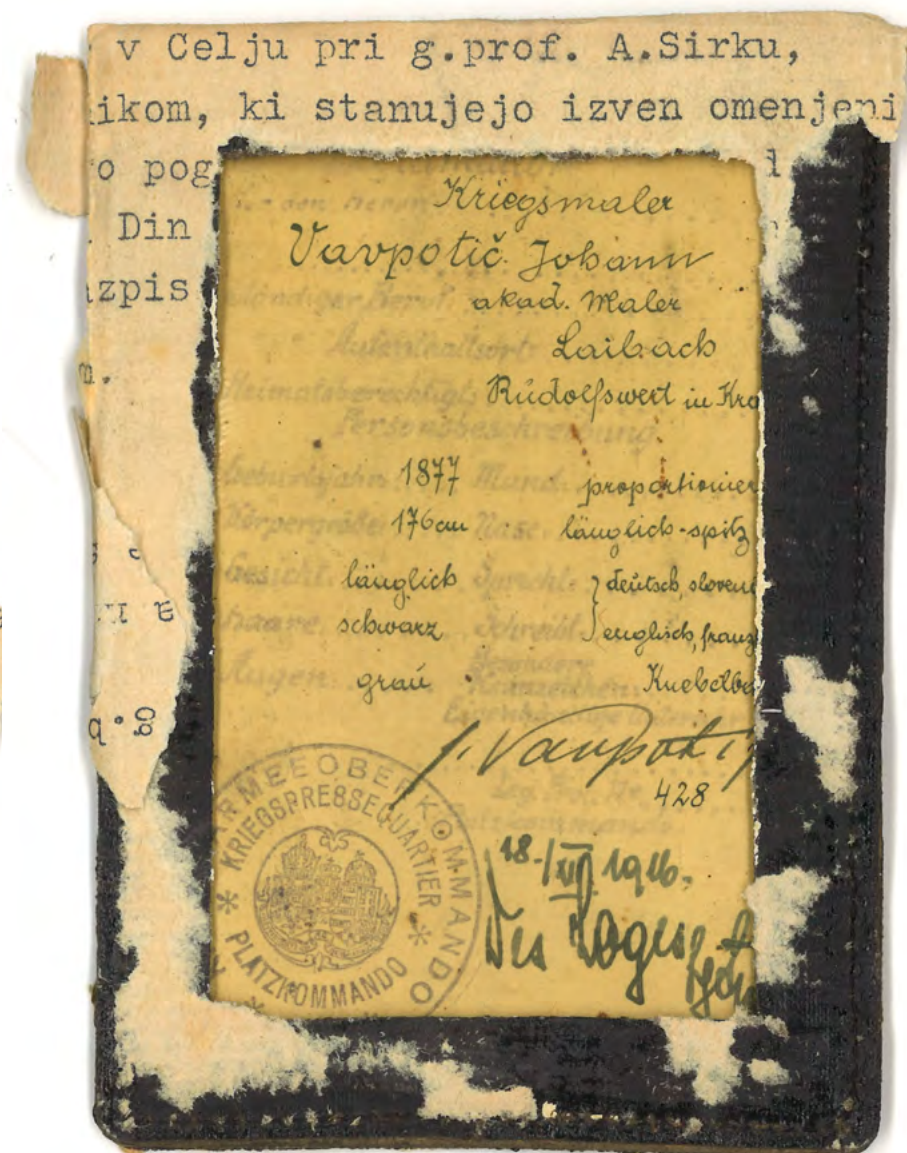 v Celju pri g.prof. A.Sirku,
ikom, ki stanujejo izven omenjeni
o pog
Din
zpis
m.
Kriegsmaler
Vavpotič Johann
akad. Maler
Aufenthaltsort: Laibach
Heimatsberechtigt: Rudolfswert in Kra
Personsbeschreibung
Geburtsjahr: 1877 Mund: proportionier
Körpergröße: 176 cm Nase: länglich-spitz
Gesicht: länglich Spricht: deutsch, sloveni
Haare: schwarz Schreibt: englisch, franz
Augen: grau Besondere Kennzeichen: Knebelba
J. Vavpoti
428
18./VIII 1916.
Des
ARMEEOBERKOMMANDO
KRIEGSPRESSEQUARTIER
PLATZKOMMANDO